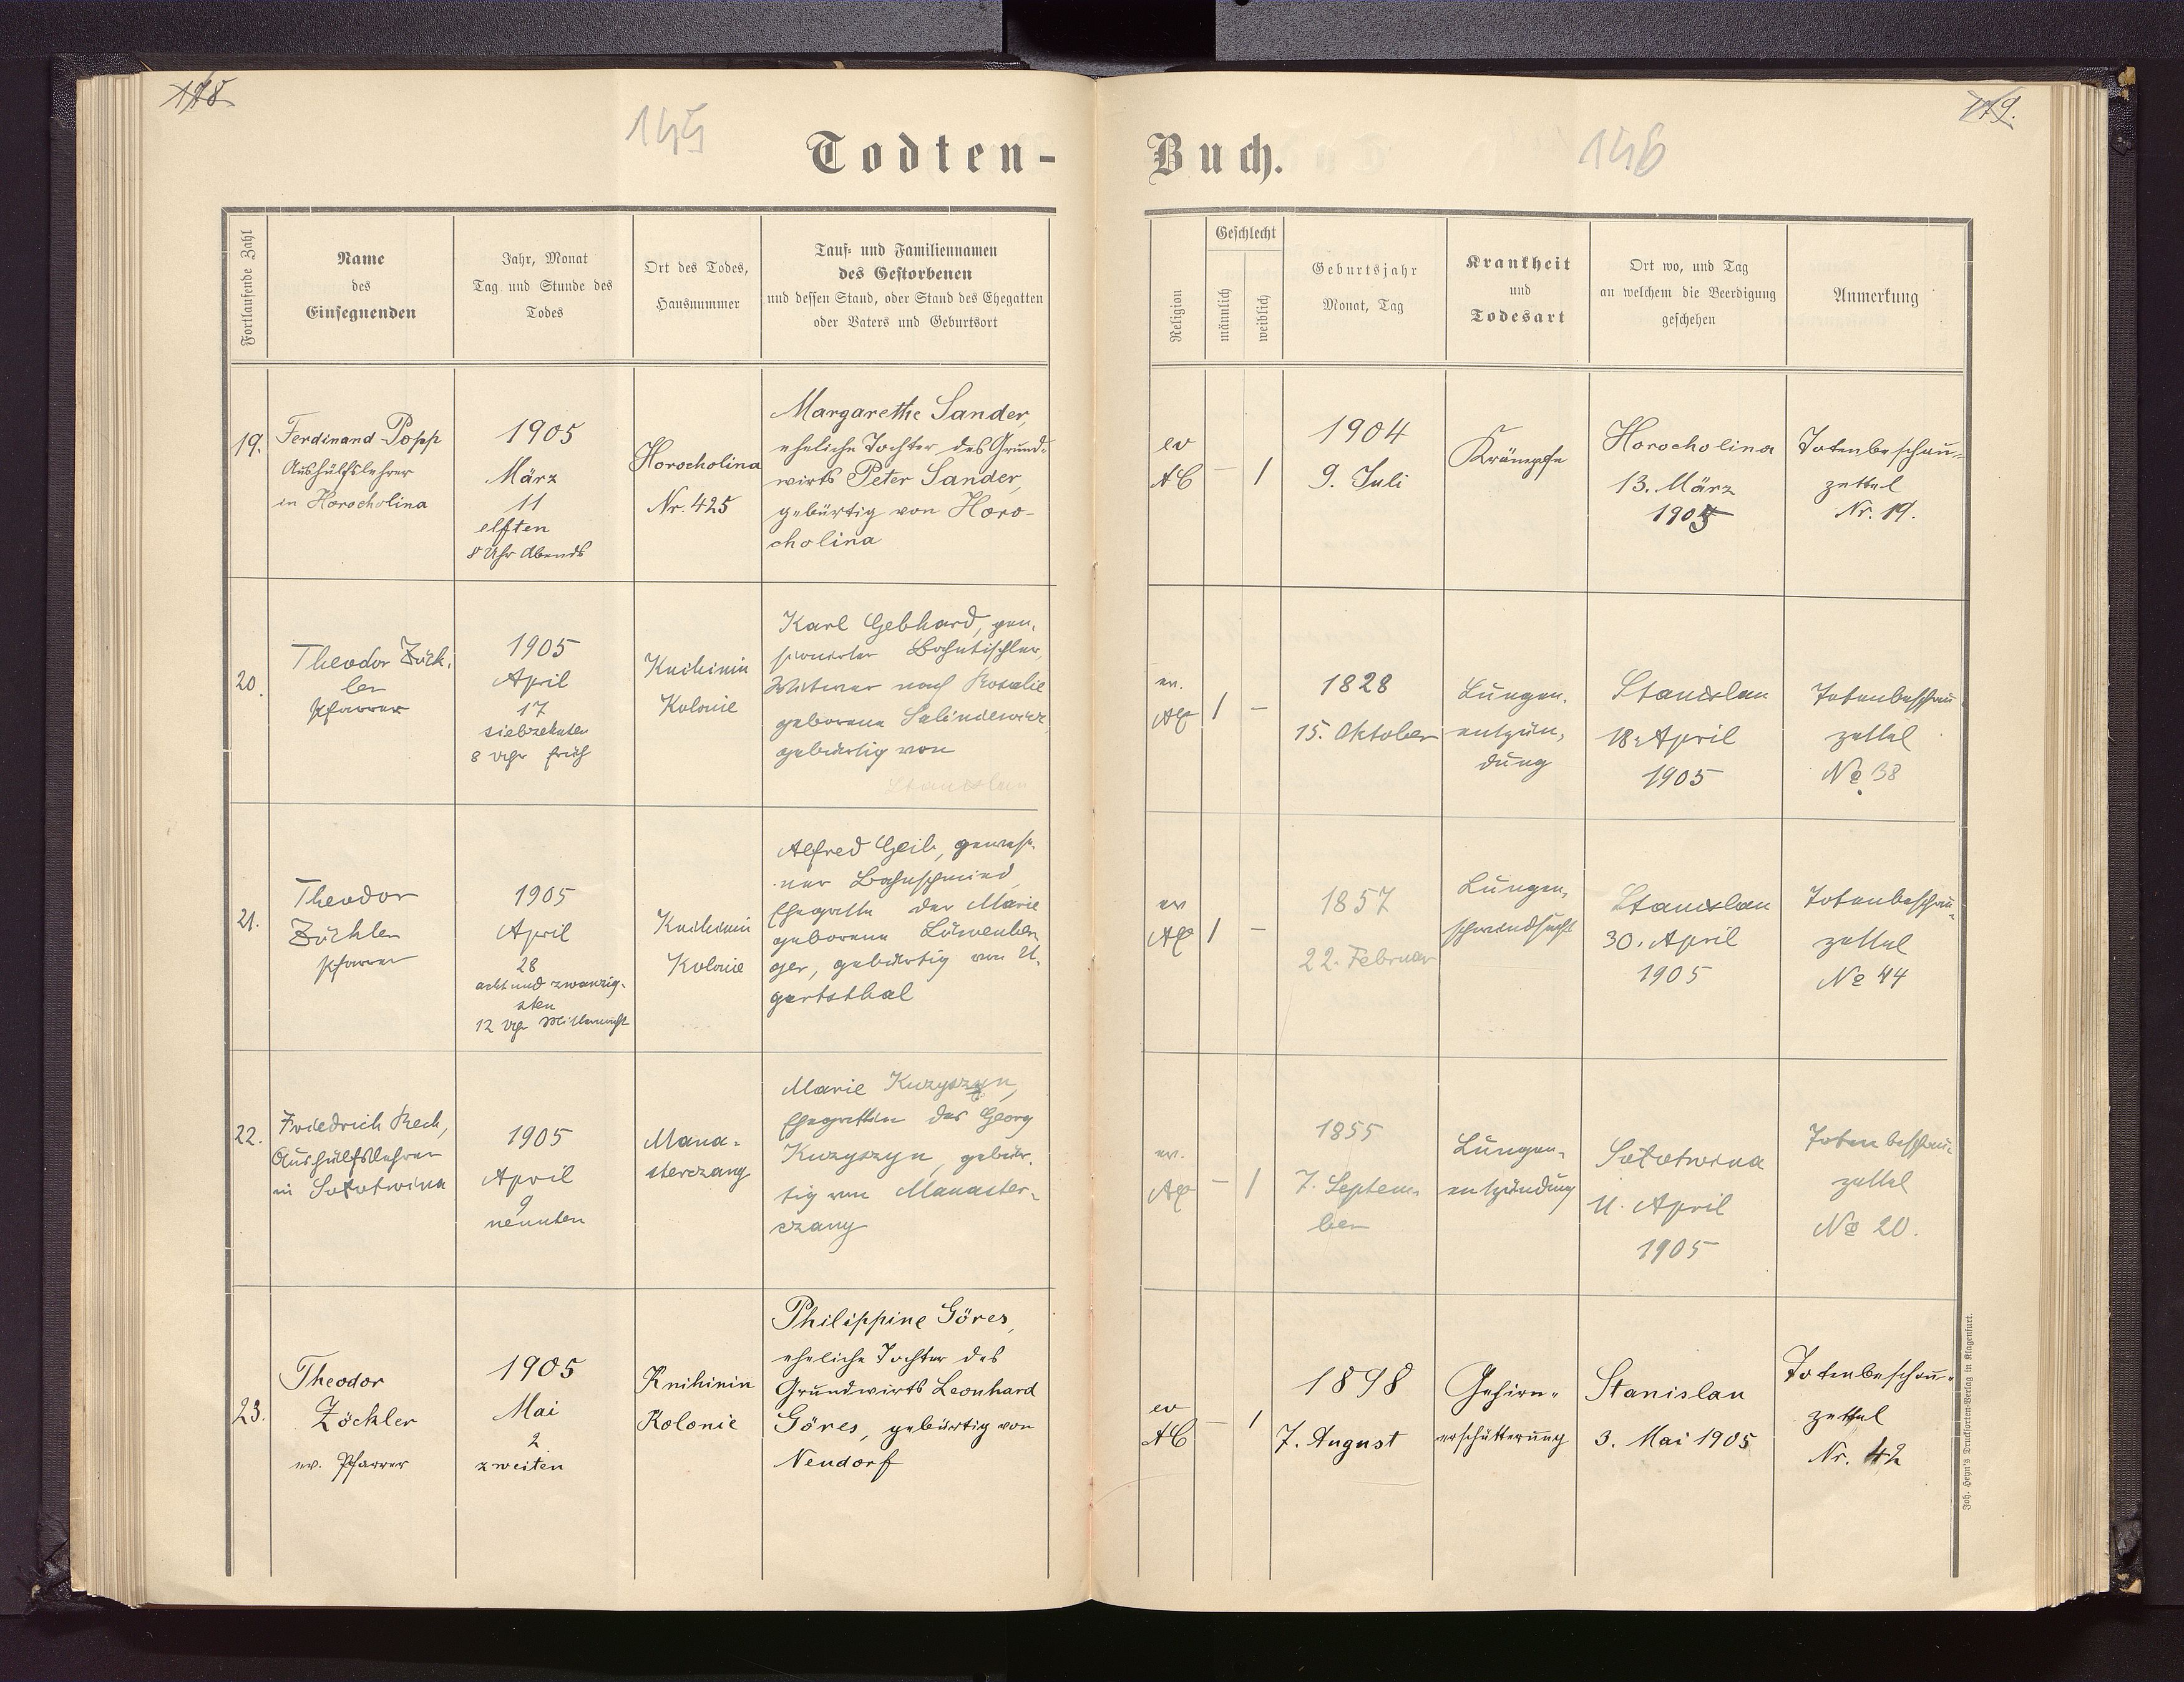 118
119.
145
146
Todten-
Buch.
Fortlaufende Zahl
Name
des
Einsegnenden
Jahr, Monat
Tag und Stunde des
Todes
Ort des Todes,
Hausnummer
Tauf- und Familiennamen
des Gestorbenen
und dessen Stand, oder Stand des Ehegatten
oder Vaters und Geburtsort
Religion
Geschlecht
männlich
weiblich
Geburtsjahr
Monat, Tag
Krankheit
und
Todesart
Ort wo, und Tag
an welchem die Beerdigung
geschehen
Anmerkung
19.
Ferdinand Popp
Aushülfslehrer
in Horocholina
1905
März
11
elften
8 Uhr Abends
Horocholina
Nr. 425
Margarethe Sander,
eheliche Tochter des Grund-
wirts Peter Sander,
gebürtig von Horo-
cholina
ev
AC
–
1
1904
9. Juli
Krämpfe
Horocholina
13. März
1905
Totenbeschau-
zettel
Nr. 19.
20.
Theodor Zöck-
ler
Pfarrer
1905
April
17
siebzehnten
8 Uhr früh
Knihinin
Kolonie
Karl Gebhard, pen-
sionierter Bahntischler,
Witwer nach Rosalie
geborene
gebürtig von
Stanislau
ev.
AC
1
–
1828
15. Oktober
Lungen-
entzün-
dung
Stanislau
18. April
1905
Totenbeschau
zettel
No 38
21.
Theodor
Zöckler
Pfarrer
1905
April
28
acht und zwanzig-
sten
12 Uhr Mitternacht
Knihinin
Kolonie
Alfred Geib, gewese-
ner Bahnschmied,
Ehegatte der Marie
geborene Löwenber-
ger, gebürtig von U-
gartsthal
ev
AC
1
–
1857
22. Februar
Lungen-
schwindsucht
Stanislau
30. April
1905
Totenbeschau-
zettel
No 44
22.
Friedrich Rech,
Aushülfslehrer
in Sołotwina
1905
April
9
neunten
Mana-
sterczany
Marie Kuzyszyn,
Ehegattin des Georg
Kuzyszyn, gebür-
tig von Manaster-
czany
ev.
AC
–
1
1855
7. Septem-
ber
Lungen-
entzündung
Sołotwina
11. April
1905
Totenbeschau-
zettel
No 20.
23.
Theodor
Zöckler
ev. Pfarrer
1905
Mai
2
zweiten
Knihinin
Kolonie
Philippine Göres,
eheliche Tochter des
Grundwirts Leonhard
Göres, gebürtig von
Neudorf
ev
AC
–
1
1898
7. August
Gehirn-
erschütterung
Stanislau
3. Mai 1905
Totenbeschau-
zettel
Nr. 42
Joh. Heyn's Drucksorten-Verlag in Klagenfurt.